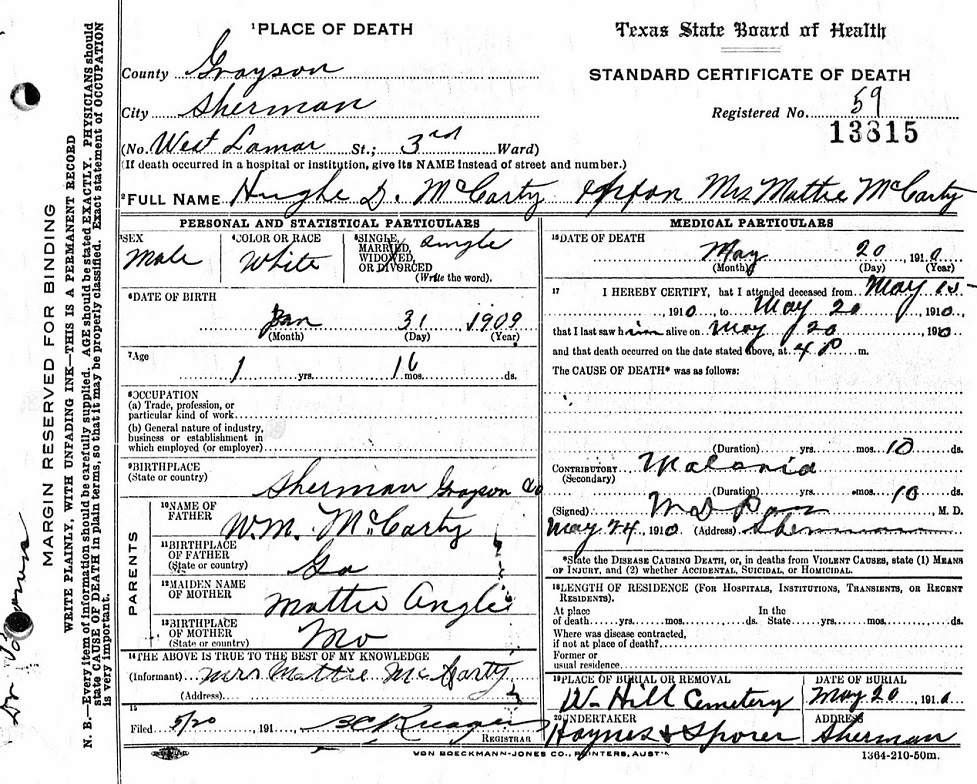 ¹PLACE OF DEATH
County Grayson
City Sherman
(No. West Lamar St.; 3rd Ward)
(If death occurred in a hospital or institution, give its NAME instead of street and number.)
Texas State Board of Health
STANDARD CERTIFICATE OF DEATH
Registered No. 59
13815
²FULL NAME Hughe D. McCarty of son Mrs Mattie McCarty
PERSONAL AND STATISTICAL PARTICULARS
³SEX
Male
⁴COLOR OR RACE
White
⁵SINGLE, MARRIED, WIDOWED, OR DIVORCED
(Write the word).
Single
⁶DATE OF BIRTH
Jan 31 1909
(Month) (Day) (Year)
⁷Age
1 yrs. 16 mos. ds.
⁸OCCUPATION
(a) Trade, profession, or
particular kind of work
(b) General nature of industry,
business or establishment in
which employed (or employer)
⁹BIRTHPLACE
(State or country)
Sherman Grayson Co
PARENTS
¹⁰NAME OF
FATHER
W.M. McCarty
¹¹BIRTHPLACE
OF FATHER
(State or country)
Ga
¹²MAIDEN NAME
OF MOTHER
Mattie Angle
¹³BIRTHPLACE
OF MOTHER
(State or country)
Mo
¹⁴THE ABOVE IS TRUE TO THE BEST OF MY KNOWLEDGE
(Informant) Mrs Mattie McCarty
(Address)
15
Filed 5/20 191
REGISTRAR
MEDICAL PARTICULARS
¹⁶DATE OF DEATH
May 20, 1910
(Month) (Day) (Year)
17 I HEREBY CERTIFY, that I attended deceased from May 15
1910, to May 20 1910,
that I last saw him alive on May 20 1910
and that death occurred on the date stated above, at 4 P m.
The CAUSE OF DEATH* was as follows:
(Duration) yrs. mos. 10 ds.
CONTRIBUTORY
(Secondary)
Malaria
(Duration) yrs. mos. 10 ds.
(Signed) M. D.
May 24, 1910 (Address) Sherman
*State the DISEASE CAUSING DEATH, or, in deaths from VIOLENT CAUSES, state (1) MEANS
OF INJURY, and (2) whether ACCIDENTAL, SUICIDAL, or HOMICIDAL.
¹⁸LENGTH OF RESIDENCE (FOR HOSPITALS, INSTITUTIONS, TRANSIENTS, OR RECENT
RESIDENTS).
At place In the
of death yrs. mos. ds. State yrs. mos. ds.
Where was disease contracted,
if not at place of death?
Former or
usual residence
¹⁹PLACE OF BURIAL OR REMOVAL
W. Hill Cemetery
DATE OF BURIAL
May 20 1910
²⁰UNDERTAKER
Haynes & Sporer
ADDRESS
Sherman
VON BOECKMANN-JONES CO., PRINTERS, AUSTIN
1364-210-50m.
MARGIN RESERVED FOR BINDING
WRITE PLAINLY, WITH UNFADING INK—THIS IS A PERMANENT RECORD
N. B.—Every item of information should be carefully supplied. AGE should be stated EXACTLY. PHYSICIANS should
state CAUSE OF DEATH in plain terms, so that it may be properly classified. Exact statement of OCCUPATION
is very important.